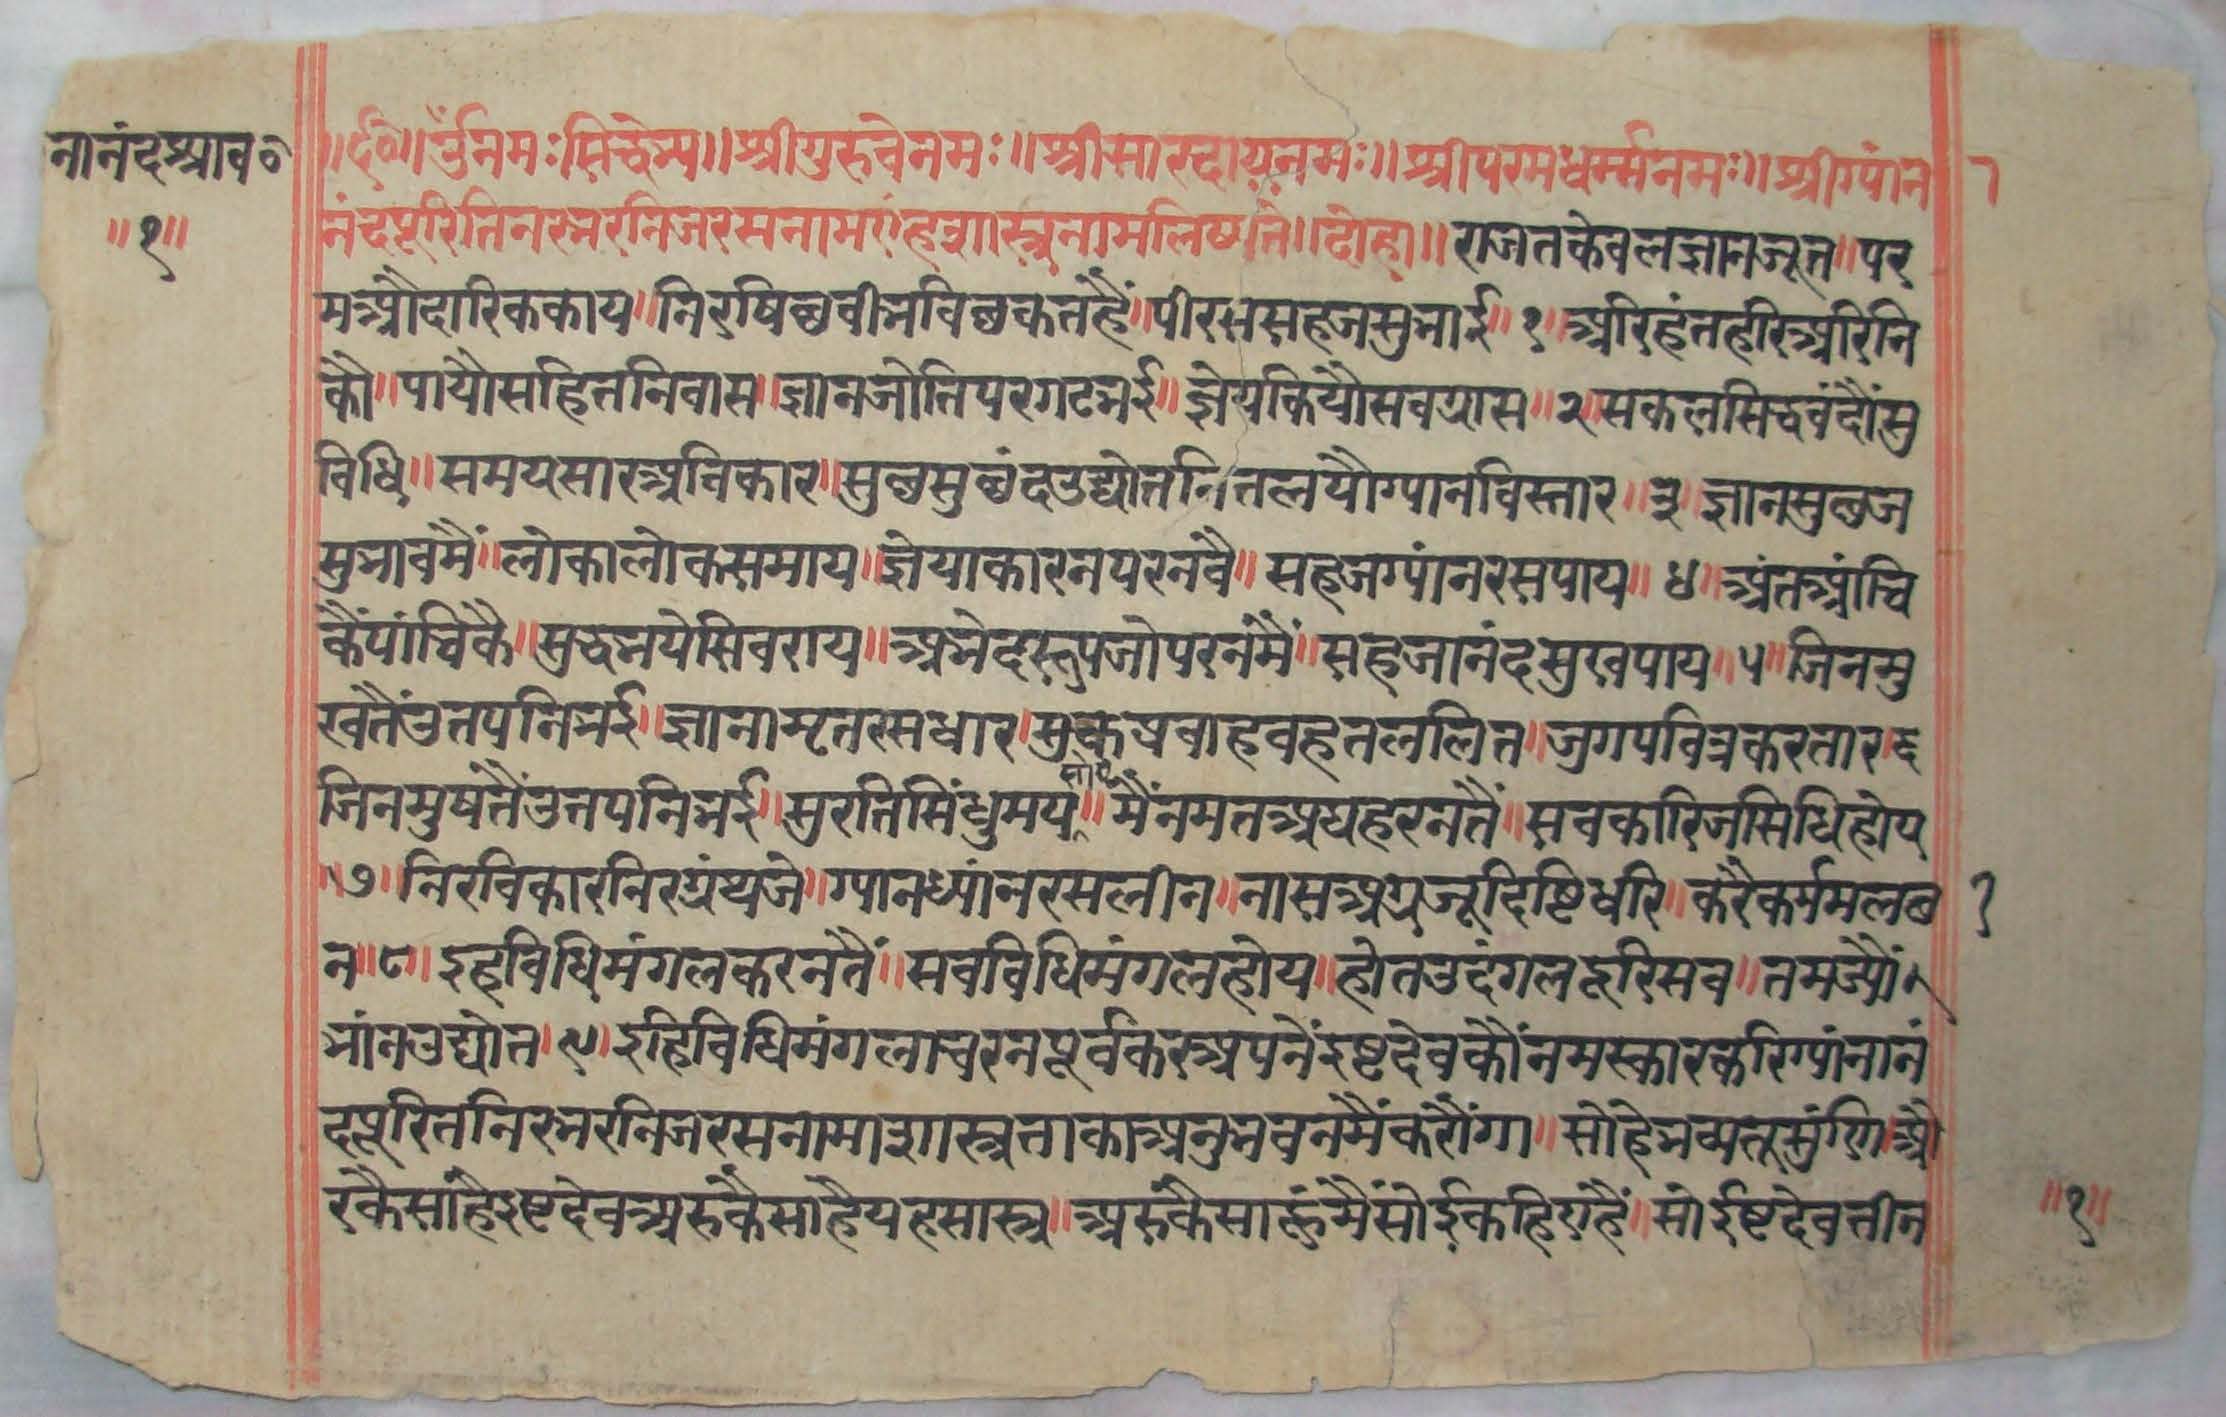 नानंदश्राव०
॥१॥
॥र्द०॥ ॐनमःसिद्धेभ्य॥श्रीगुरुवेनमः॥श्रीसारदायनमः॥श्रीपरमधर्म्मनमः॥श्रीग्यांन
नंदपूरितिनरभरनिजरसनामएहशास्त्रनामलिष्यते॥दोहा॥राजतकेवलज्ञानजूत॥पर
मऔदारिककाय॥निरषिछवीभविछकतहैं॥पीरससहजसुभाई॥१॥अरिहंतहरिअरिनि
कौ॥पायौसहितनिवास॥ज्ञानजोतिपरगटभई॥ज्ञेयकियौसवग्रास॥२॥सकलसिद्धवंदौंसु
विधि॥समयसारअविकार॥सुछसुछंदउद्योतनितलयौग्यानविस्तार॥३॥ज्ञानसुछज
सुभावमैं॥लोकालोकसमाय॥ज्ञेयाकारनपरनवै॥सहजग्यांनरसपाय॥४॥अंतआंचि
कैंपांचिकै॥सुद्धभयेसिवराय॥अभेदरूपजोपरनंमैं॥सहजानंदसुखपाय॥५॥जिनमु
खतैंउतपनिभई॥ज्ञानामृतरसधार॥सुछप्रवाहवहतललित॥जुगपवित्रकरतार॥६
जिनमुषतैंउतपनिभई॥सुरतिसिंधुमय सोय॥मैंनमतअघहरनतैं॥सवकारिजसिधिहोय
॥७॥निरविकारनिरग्रंथजे॥ग्यानध्यांनरसलीन॥नासअग्रजूदिष्टिधरि॥करैकर्ममलछ
न॥८॥इहविधिमंगलकरनतैं॥सवविधिमंगलहोय॥होतउदंगलदूरिसव॥तमज्यौं
भांनउद्योत॥९॥इहिविधिमंगलाचरनपूर्वकरअपनेंइष्टदेवकौंनमस्कारकरिग्यांनानं
दपूरितनिरभरनिजरसनामाशास्त्रताकाअनुभवनमैंकरौंगा॥सोहेभव्यतूसुंणि॥औ
रकैसाहैइष्टदेवअरुकैसाहैयहसास्त्र॥अरुकैसाहूंमैंसोईकहिएहैं॥सोईष्टदेवतीन
॥१॥